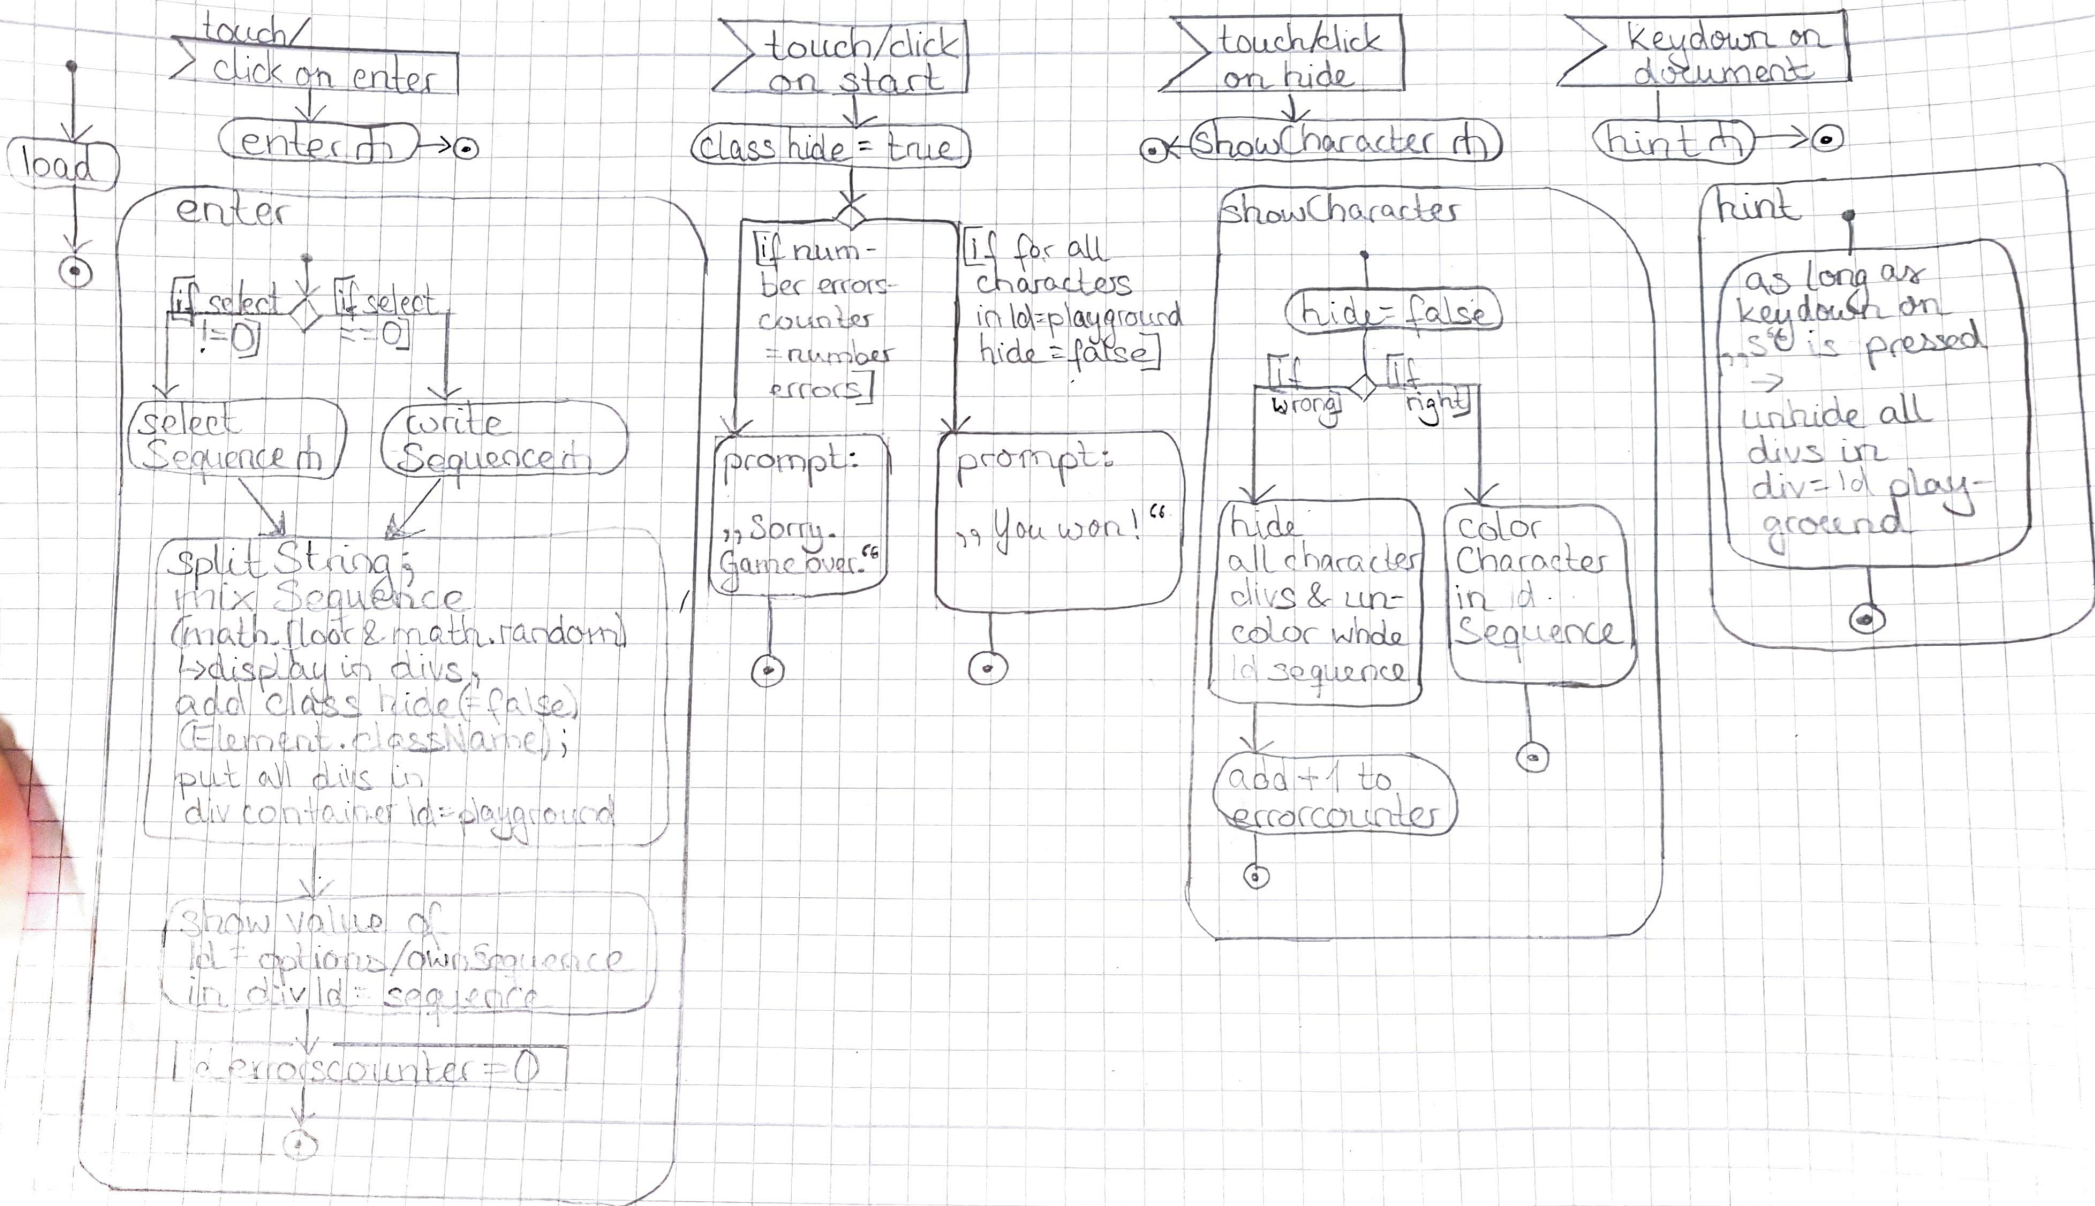 touch/
click on enter
enter
load
enter
[if select
!=0]
[if select
==0]
select
Sequence
write
Sequence
split String;
mix Sequence
(math.floor & math.random)
↳display in divs,
add class hide(=false)
(Element.className);
put all divs in
div container Id=playground
show value of
Id = options/ownSequence
in div Id = sequence
errorscounter = 0
touch/click
on start
class hide = true
[if num-
ber errors-
counter
=number
errors]
[if for all
characters
in Id=playground
hide = false]
prompt:
„Sorry.
Game over.“
prompt:
„You won!“
touch/click
on hide
showCharacter
showCharacter
hide = false
[if
wrong]
[if
right]
hide
all character
divs & un-
color whole
Id sequence
color
Character
in id
Sequence
add +1 to
errorcounter
keydown on
document
hint
hint
as long as
keydown on
„s“ is pressed
->
unhide all
divs in
div=Id play-
ground